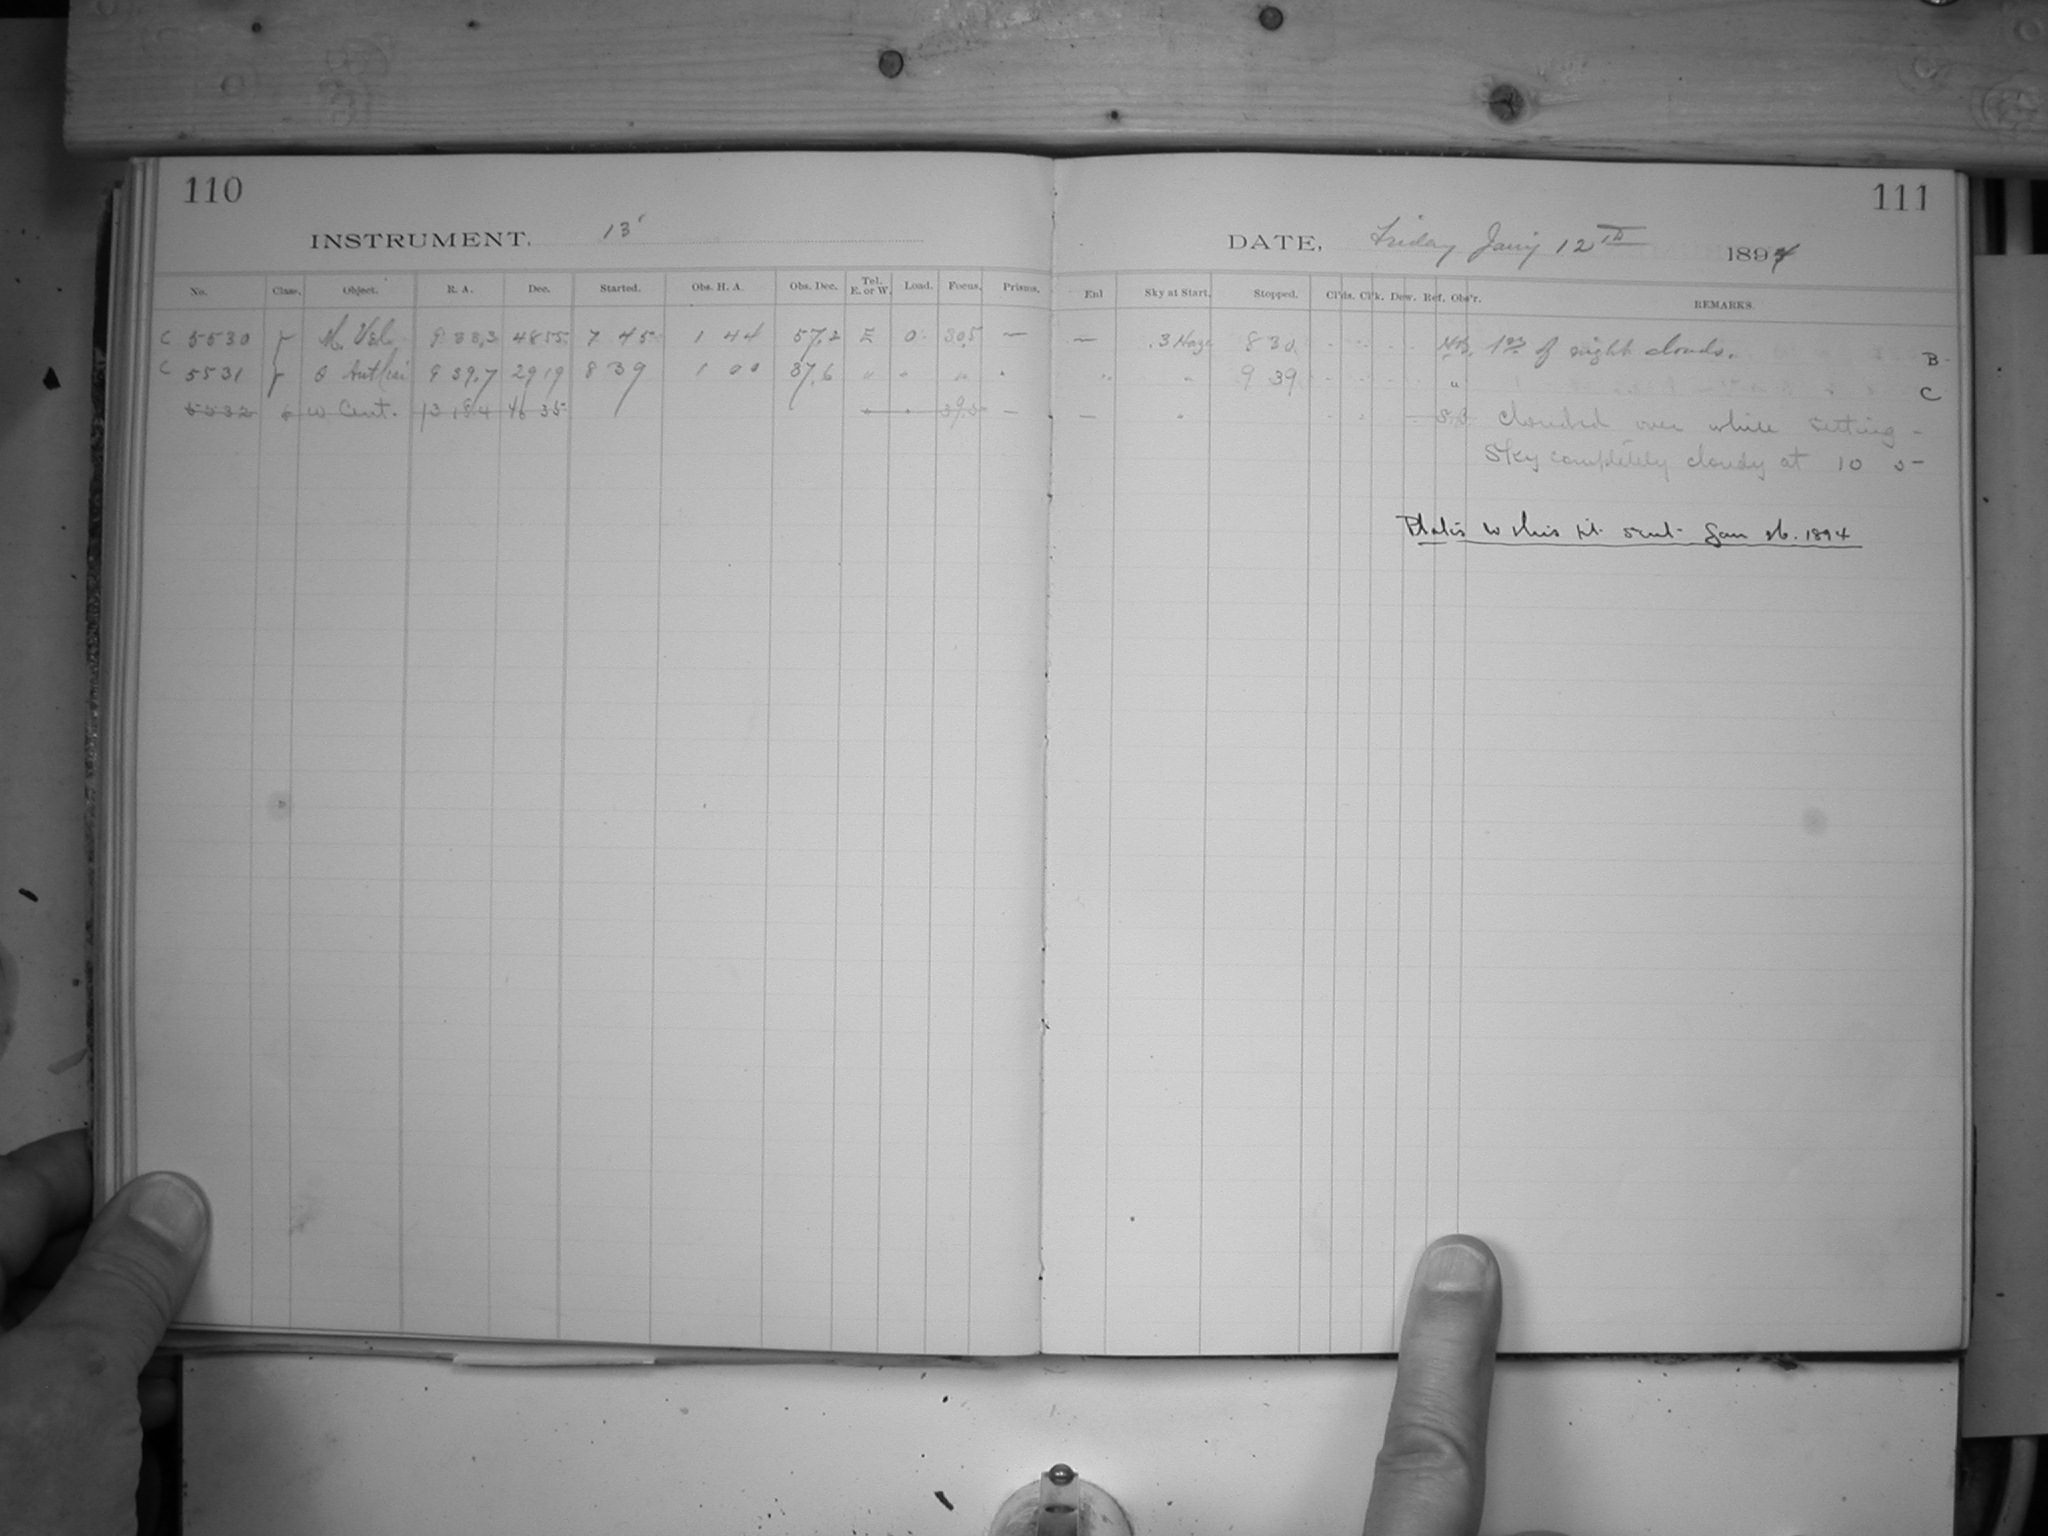 110
111
INSTRUMENT, 13'
DATE, Friday Jan'y 12th 1894
No. Class. Object. R. A. Dec. Started. Obs. H. A. Obs. Dec. Tel. E. or W. Load. Focus. Prisms.
Enl Sky at Start. Stopped. Cl'ds. Cl'k. Dew. Ref. Obs'r. REMARKS.
C 5530 M. Vel. 9 33.3 4855 7 45 1 44 57.2 E 0 — — .3 Haze 8 30 of night clouds. B
C 5531 Θ Antliae 9 39.7 29 19 8 39 1 00 37.6 " " " " " " 9 39 " C
5532 ω Cent. 13 18.4 46 35 39.5 — — " S.B. Clouded over while setting -
Sky completely cloudy at 10 5
Plates to this pt. sent Jan 26. 1894